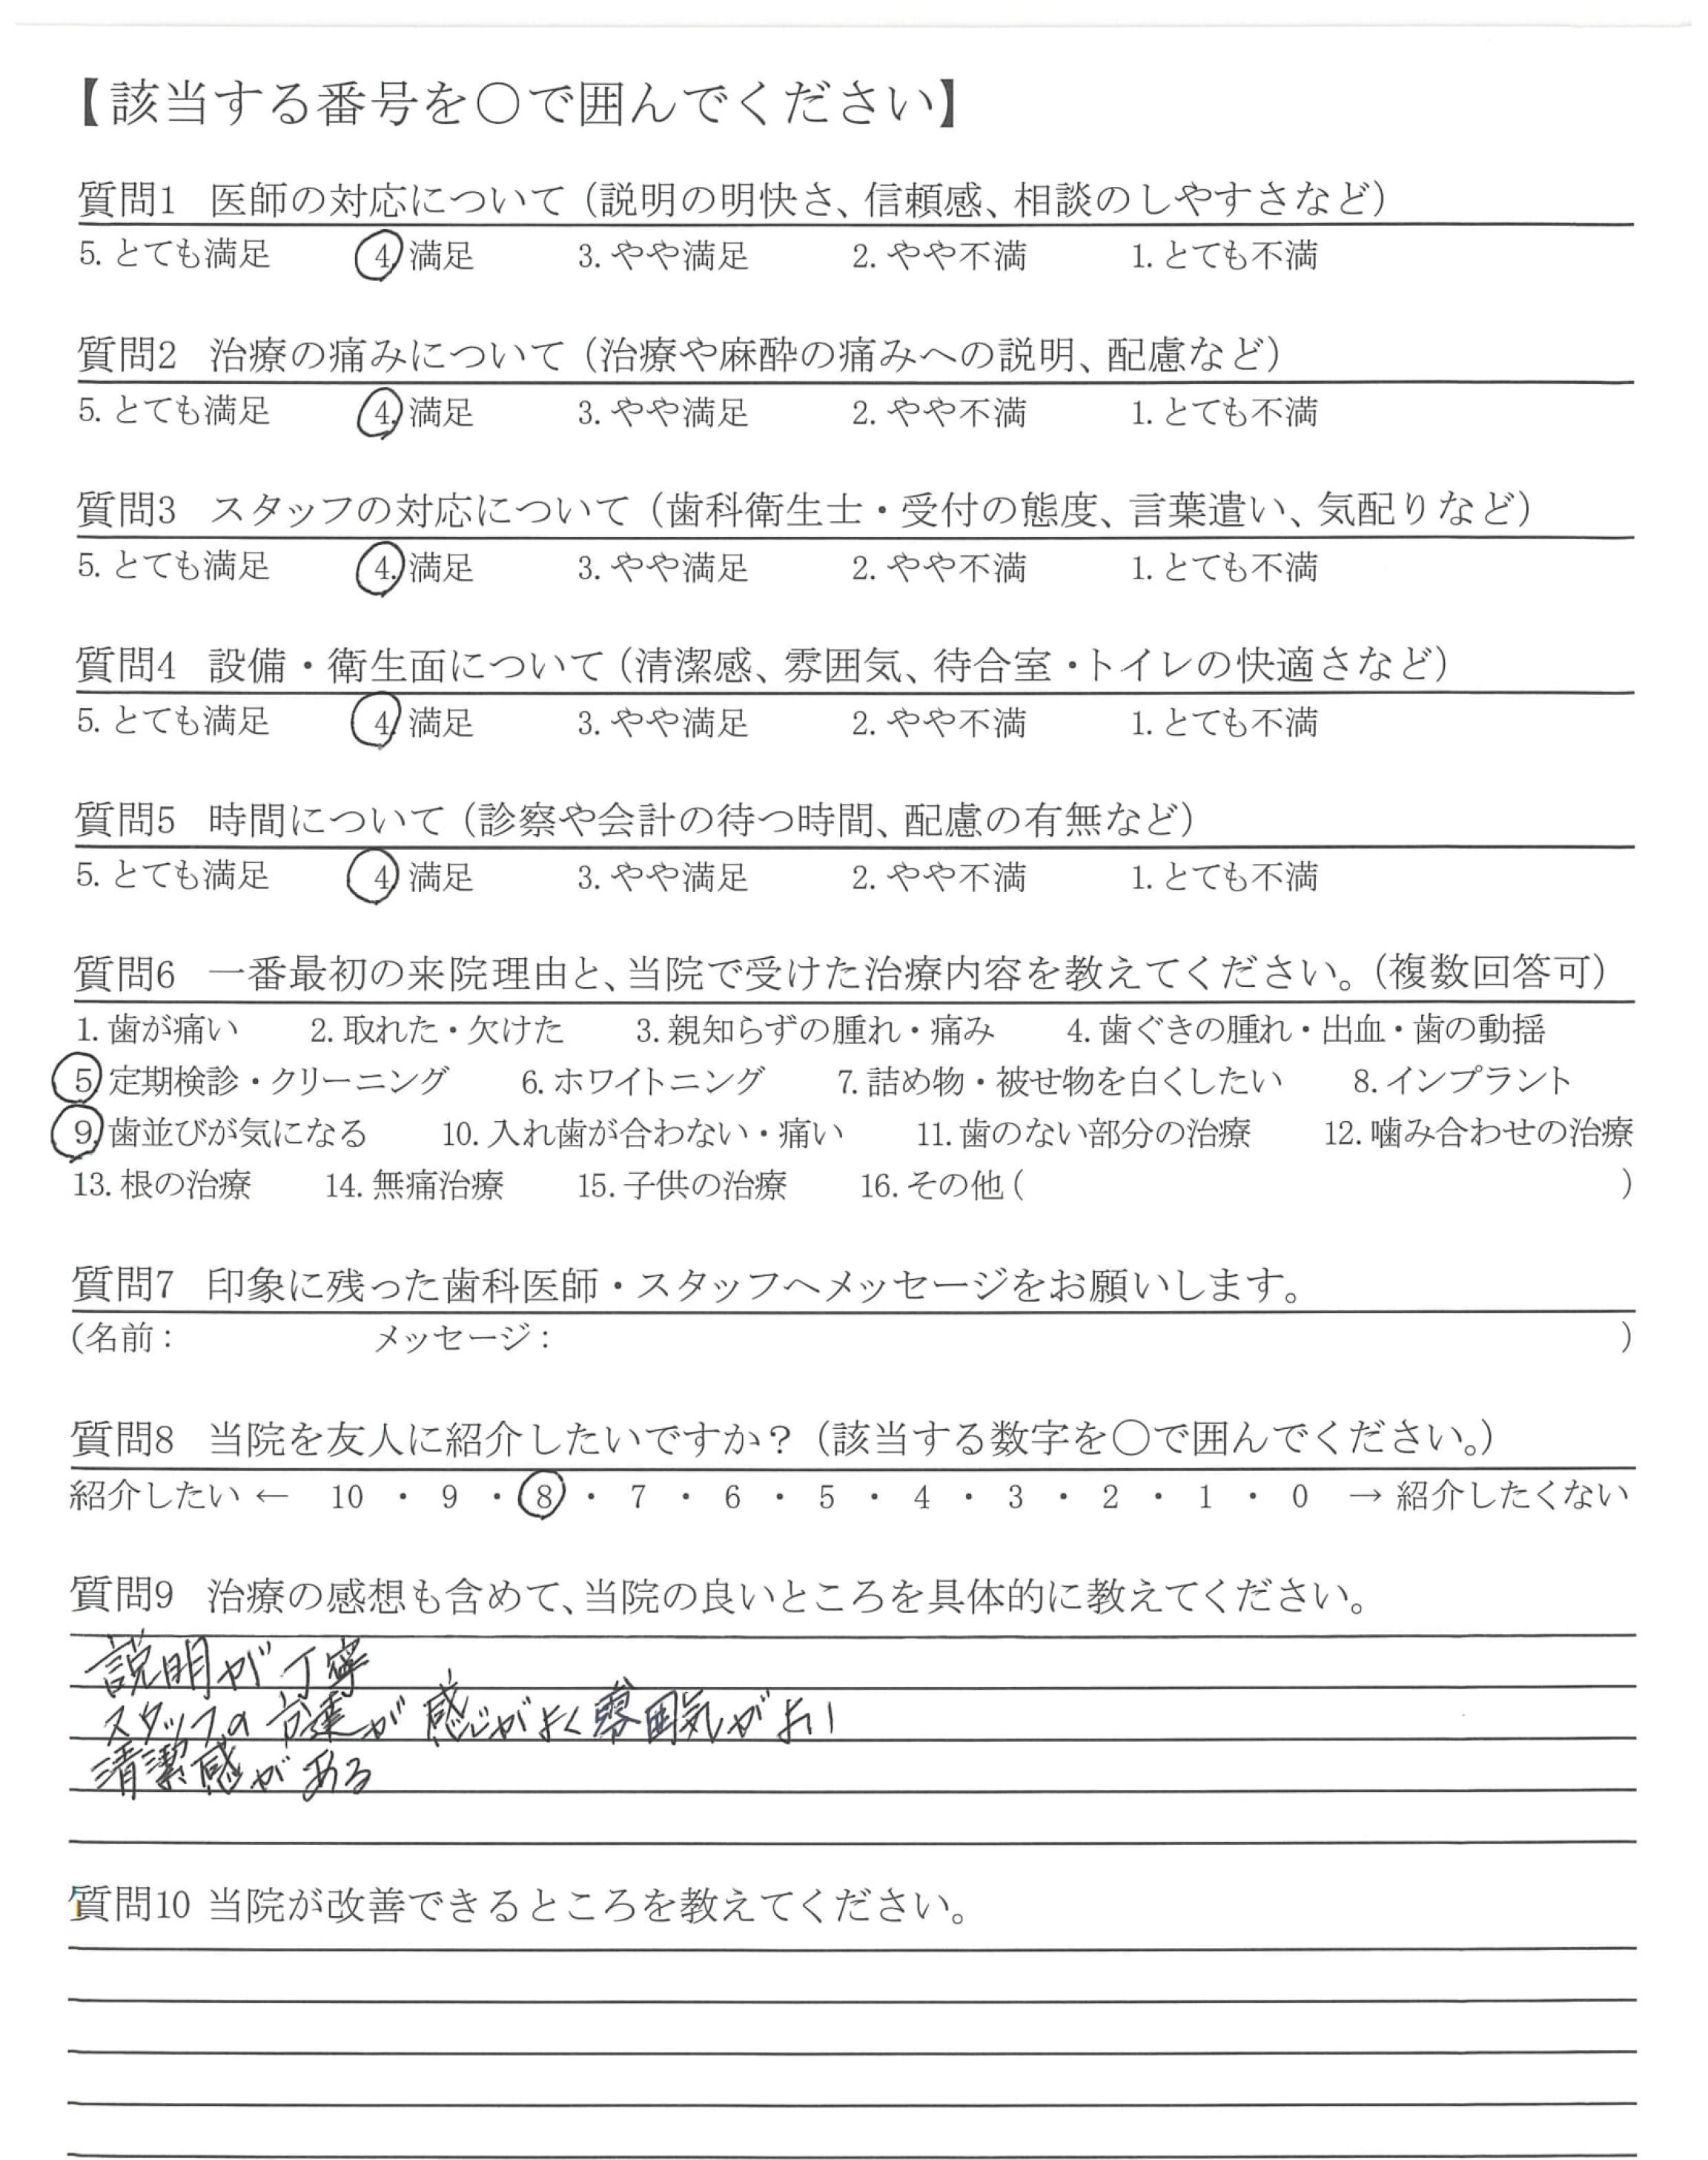 【該当する番号を○で囲んでください】
質問1 医師の対応について（説明の明快さ、信頼感、相談のしやすさなど）
5. とても満足 4. 満足 3. やや満足 2. やや不満 1. とても不満
質問2 治療の痛みについて（治療や麻酔の痛みへの説明、配慮など）
5. とても満足 4. 満足 3. やや満足 2. やや不満 1. とても不満
質問3 スタッフの対応について（歯科衛生士・受付の態度、言葉遣い、気配りなど）
5. とても満足 4. 満足 3. やや満足 2. やや不満 1. とても不満
質問4 設備・衛生面について（清潔感、雰囲気、待合室・トイレの快適さなど）
5. とても満足 4. 満足 3. やや満足 2. やや不満 1. とても不満
質問5 時間について（診察や会計の待つ時間、配慮の有無など）
5. とても満足 4. 満足 3. やや満足 2. やや不満 1. とても不満
質問6 一番最初の来院理由と、当院で受けた治療内容を教えてください。（複数回答可）
1. 歯が痛い 2. 取れた・欠けた 3. 親知らずの腫れ・痛み 4. 歯ぐきの腫れ・出血・歯の動揺
5. 定期検診・クリーニング 6. ホワイトニング 7. 詰め物・被せ物を白くしたい 8. インプラント
9. 歯並びが気になる 10. 入れ歯が合わない・痛い 11. 歯のない部分の治療 12. 噛み合わせの治療
13. 根の治療 14. 無痛治療 15. 子供の治療 16. その他（ ）
質問7 印象に残った歯科医師・スタッフへメッセージをお願いします。
（名前： メッセージ： ）
質問8 当院を友人に紹介したいですか？（該当する数字を○で囲んでください。）
紹介したい ← 10 ・ 9 ・ 8 ・ 7 ・ 6 ・ 5 ・ 4 ・ 3 ・ 2 ・ 1 ・ 0 → 紹介したくない
質問9 治療の感想も含めて、当院の良いところを具体的に教えてください。
説明が丁寧
スタッフの方達が感じがよく雰囲気がよい
清潔感がある
質問10 当院が改善できるところを教えてください。